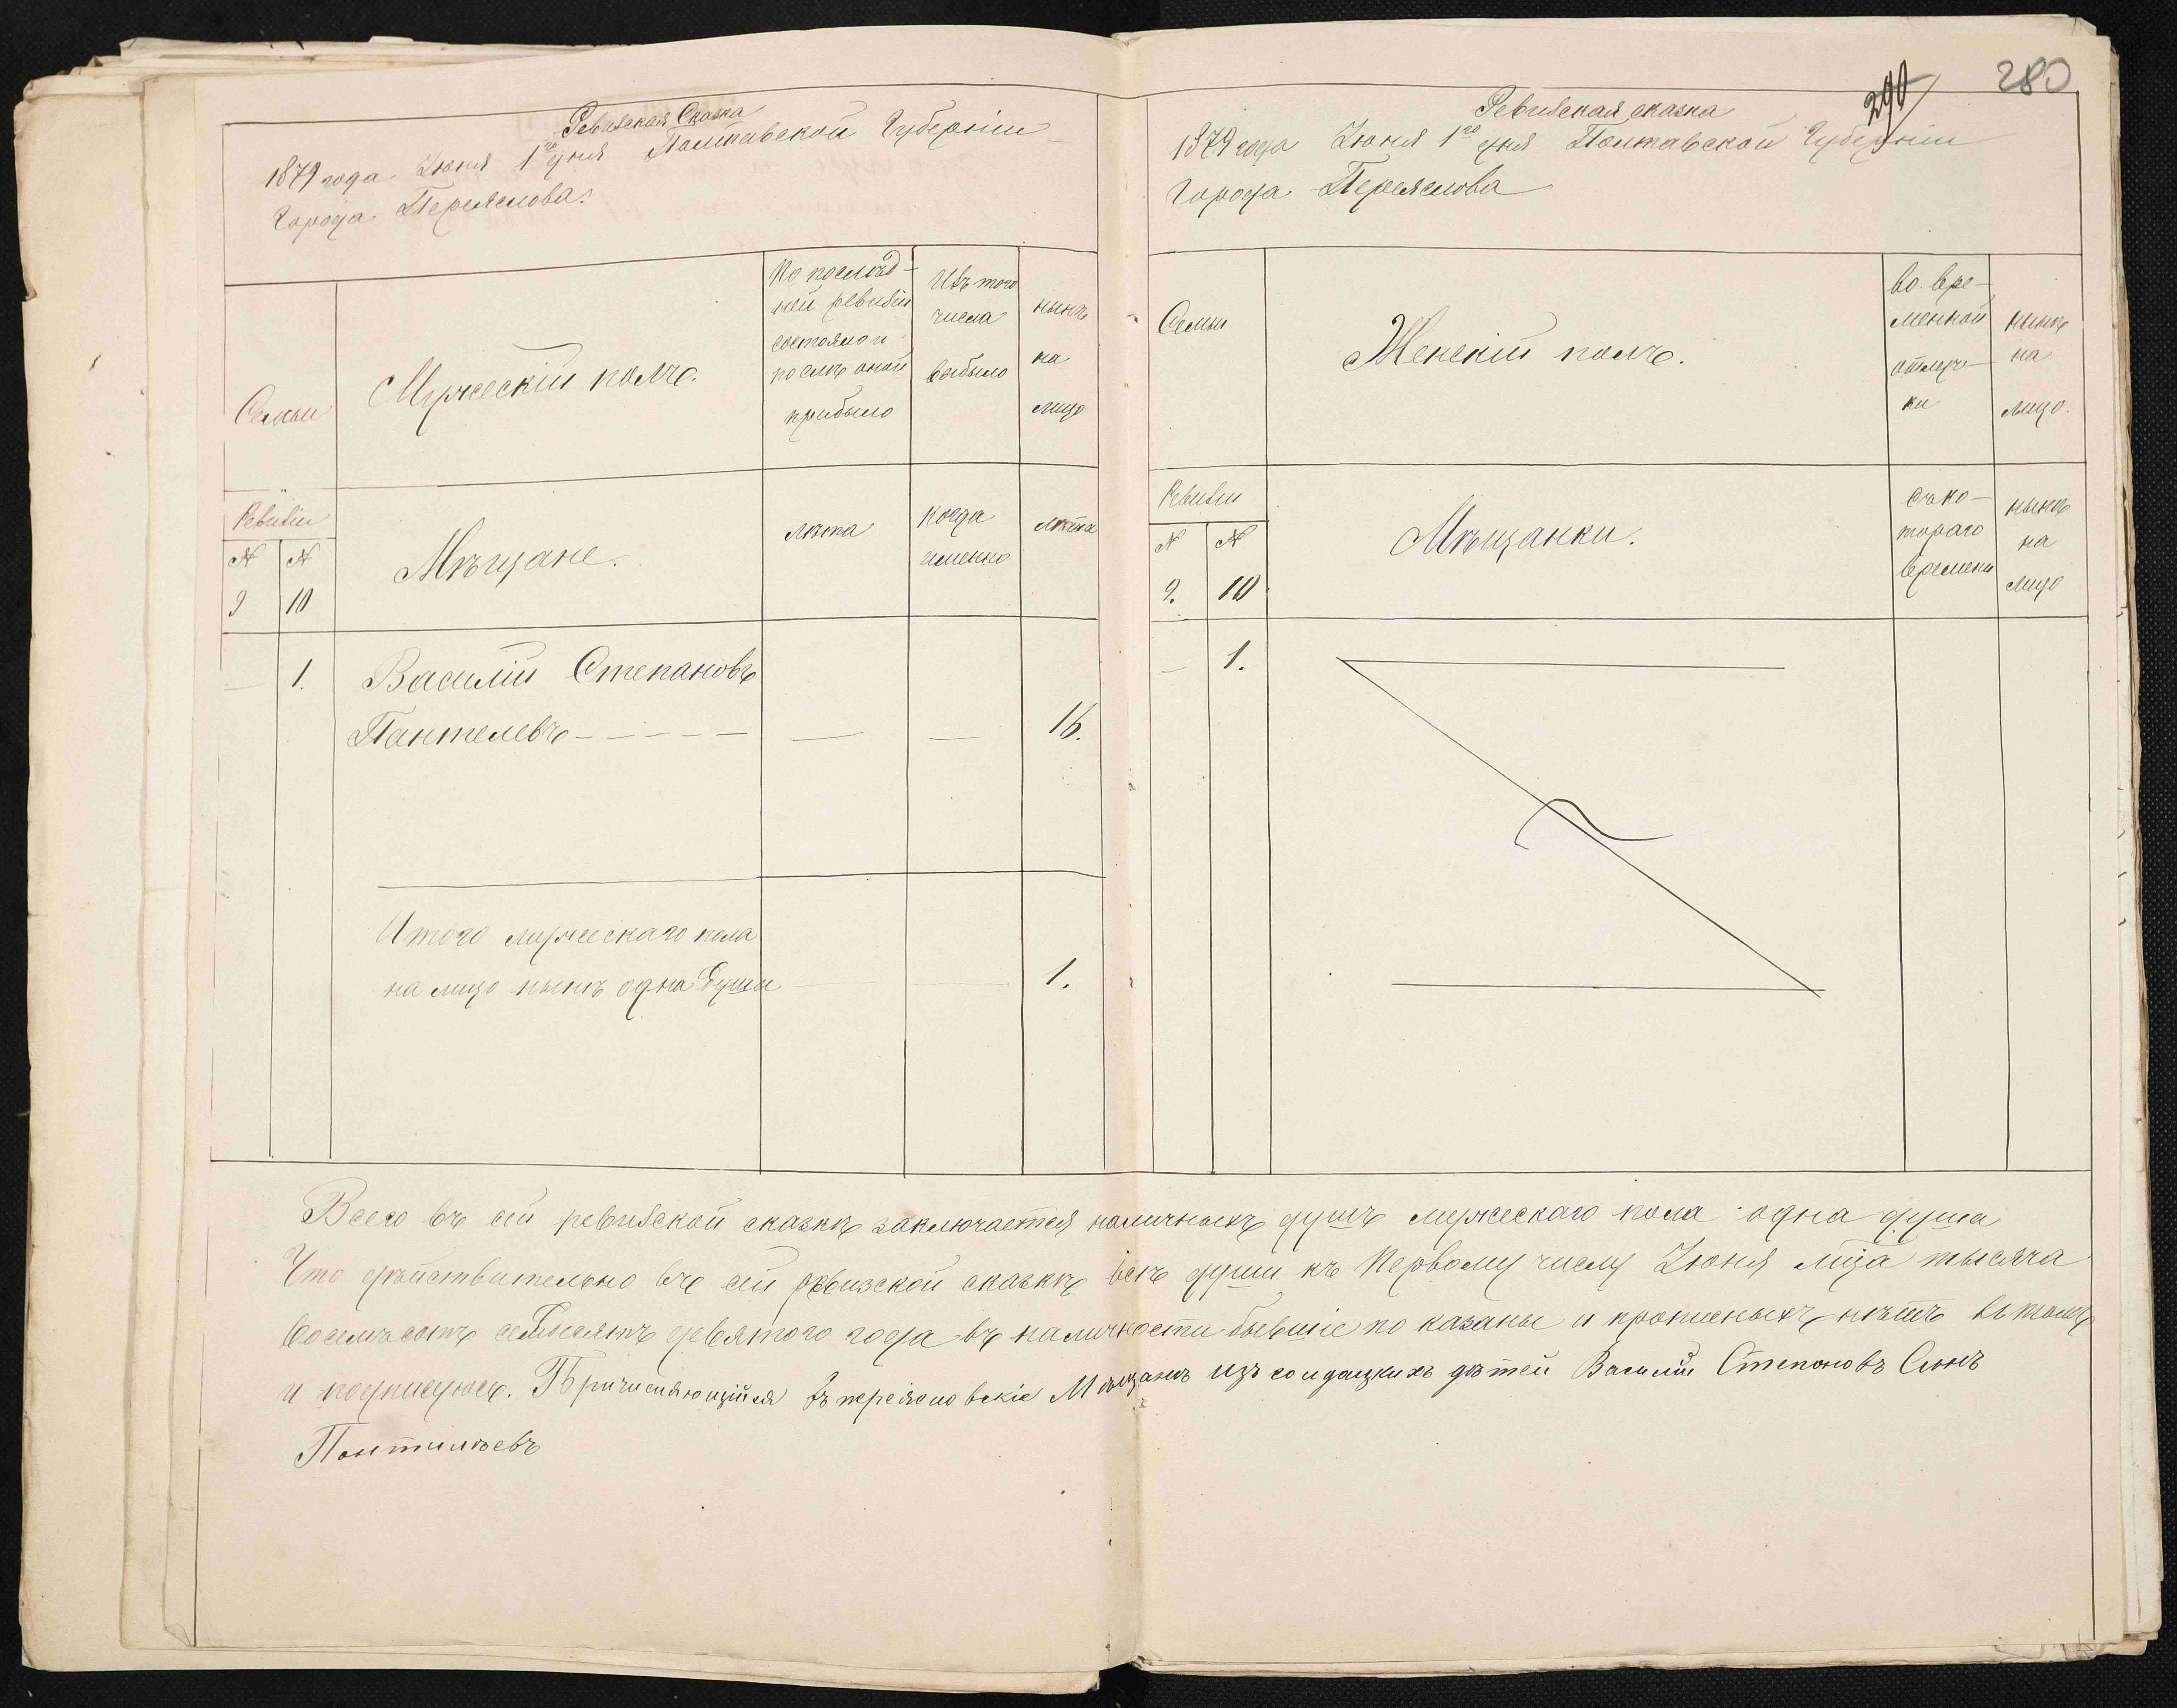 Ревизская Сказка
1879 года Июня 1го дня Полтавской Губерніи
Города Переяслова.
Семьи
Мужескій полъ.
По послѣд-
ней ревизіи
состояло и
послѣ оной
прибыло
Изъ того
числа
выбыло
нынѣ
на
лицо
Ревизіи
№ №
9 10
Мѣщане.
лѣта
когда
именно
лѣта
1. Василій Степановъ
Пантелевъ — — 16.
Итого мужескаго пола
на лицо нынѣ одна душа 1.
290
280
Ревизская сказка
1879 года Июня 1го дня Полтавской Губерніи
Города Переяслова
Семьи
Женскій полъ.
во вре-
менной
отлуч-
ки
нынѣ
на
лицо.
Ревизіи
№ №
9. 10
Мѣщанки.
съ ко-
тораго
времени
нынѣ
на
лицо
— 1.
Всего въ сей ревизской сказкѣ заключается наличныхъ душъ мужескаго пола одна душа
Что дѣйствительно въ сей ревизской сказкѣ всѣ души къ Первому числу Июня мца тысяча
восемьсотъ семьдесятъ девятого года въ наличности бывшіе показаны и прописныхъ нѣтъ въ томъ
и подписуюсь. Причисляющійся въ переясловскіе Мѣщанѣ изъ солдацкихъ дѣтей Василій Степановъ Сынъ
Понтилѣевъ